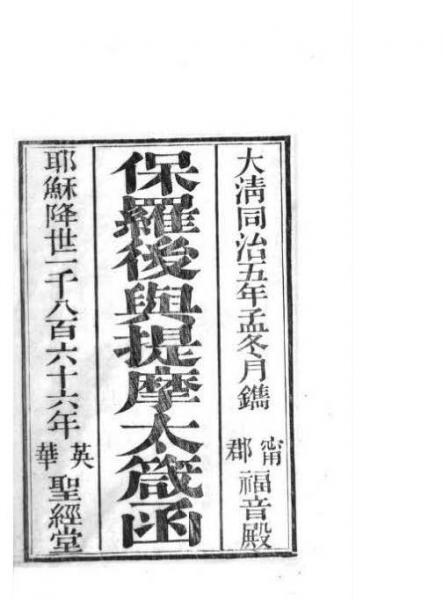 大清同治五年孟冬月鐫 甯郡 福音殿
保羅後與提摩太箴函
耶穌降世一千八百六十六年 英華 聖經堂